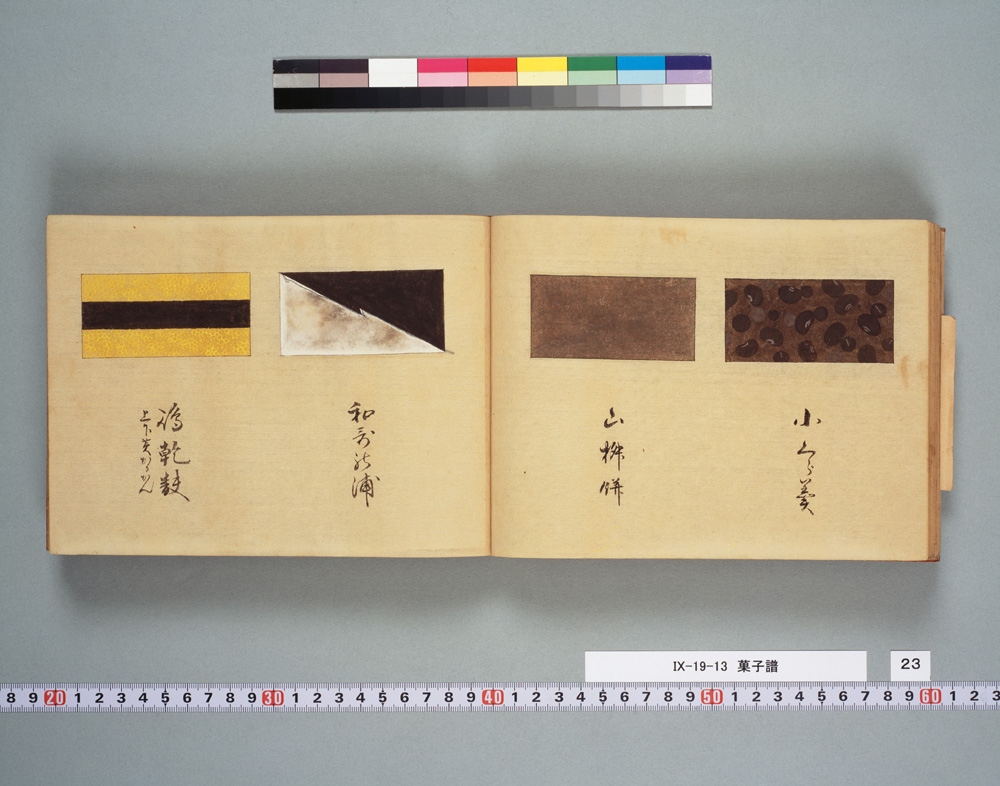 小くら羹
山椒餅
和哥の浦
上下黄かるかん
IX-19-13 菓子譜
23
8 9 20 1 2 3 4 5 6 7 8 9 30 1 2 3 4 5 6 7 8 9 40 1 2 3 4 5 6 7 8 9 50 1 2 3 4 5 6 7 8 9 60 1 2 3